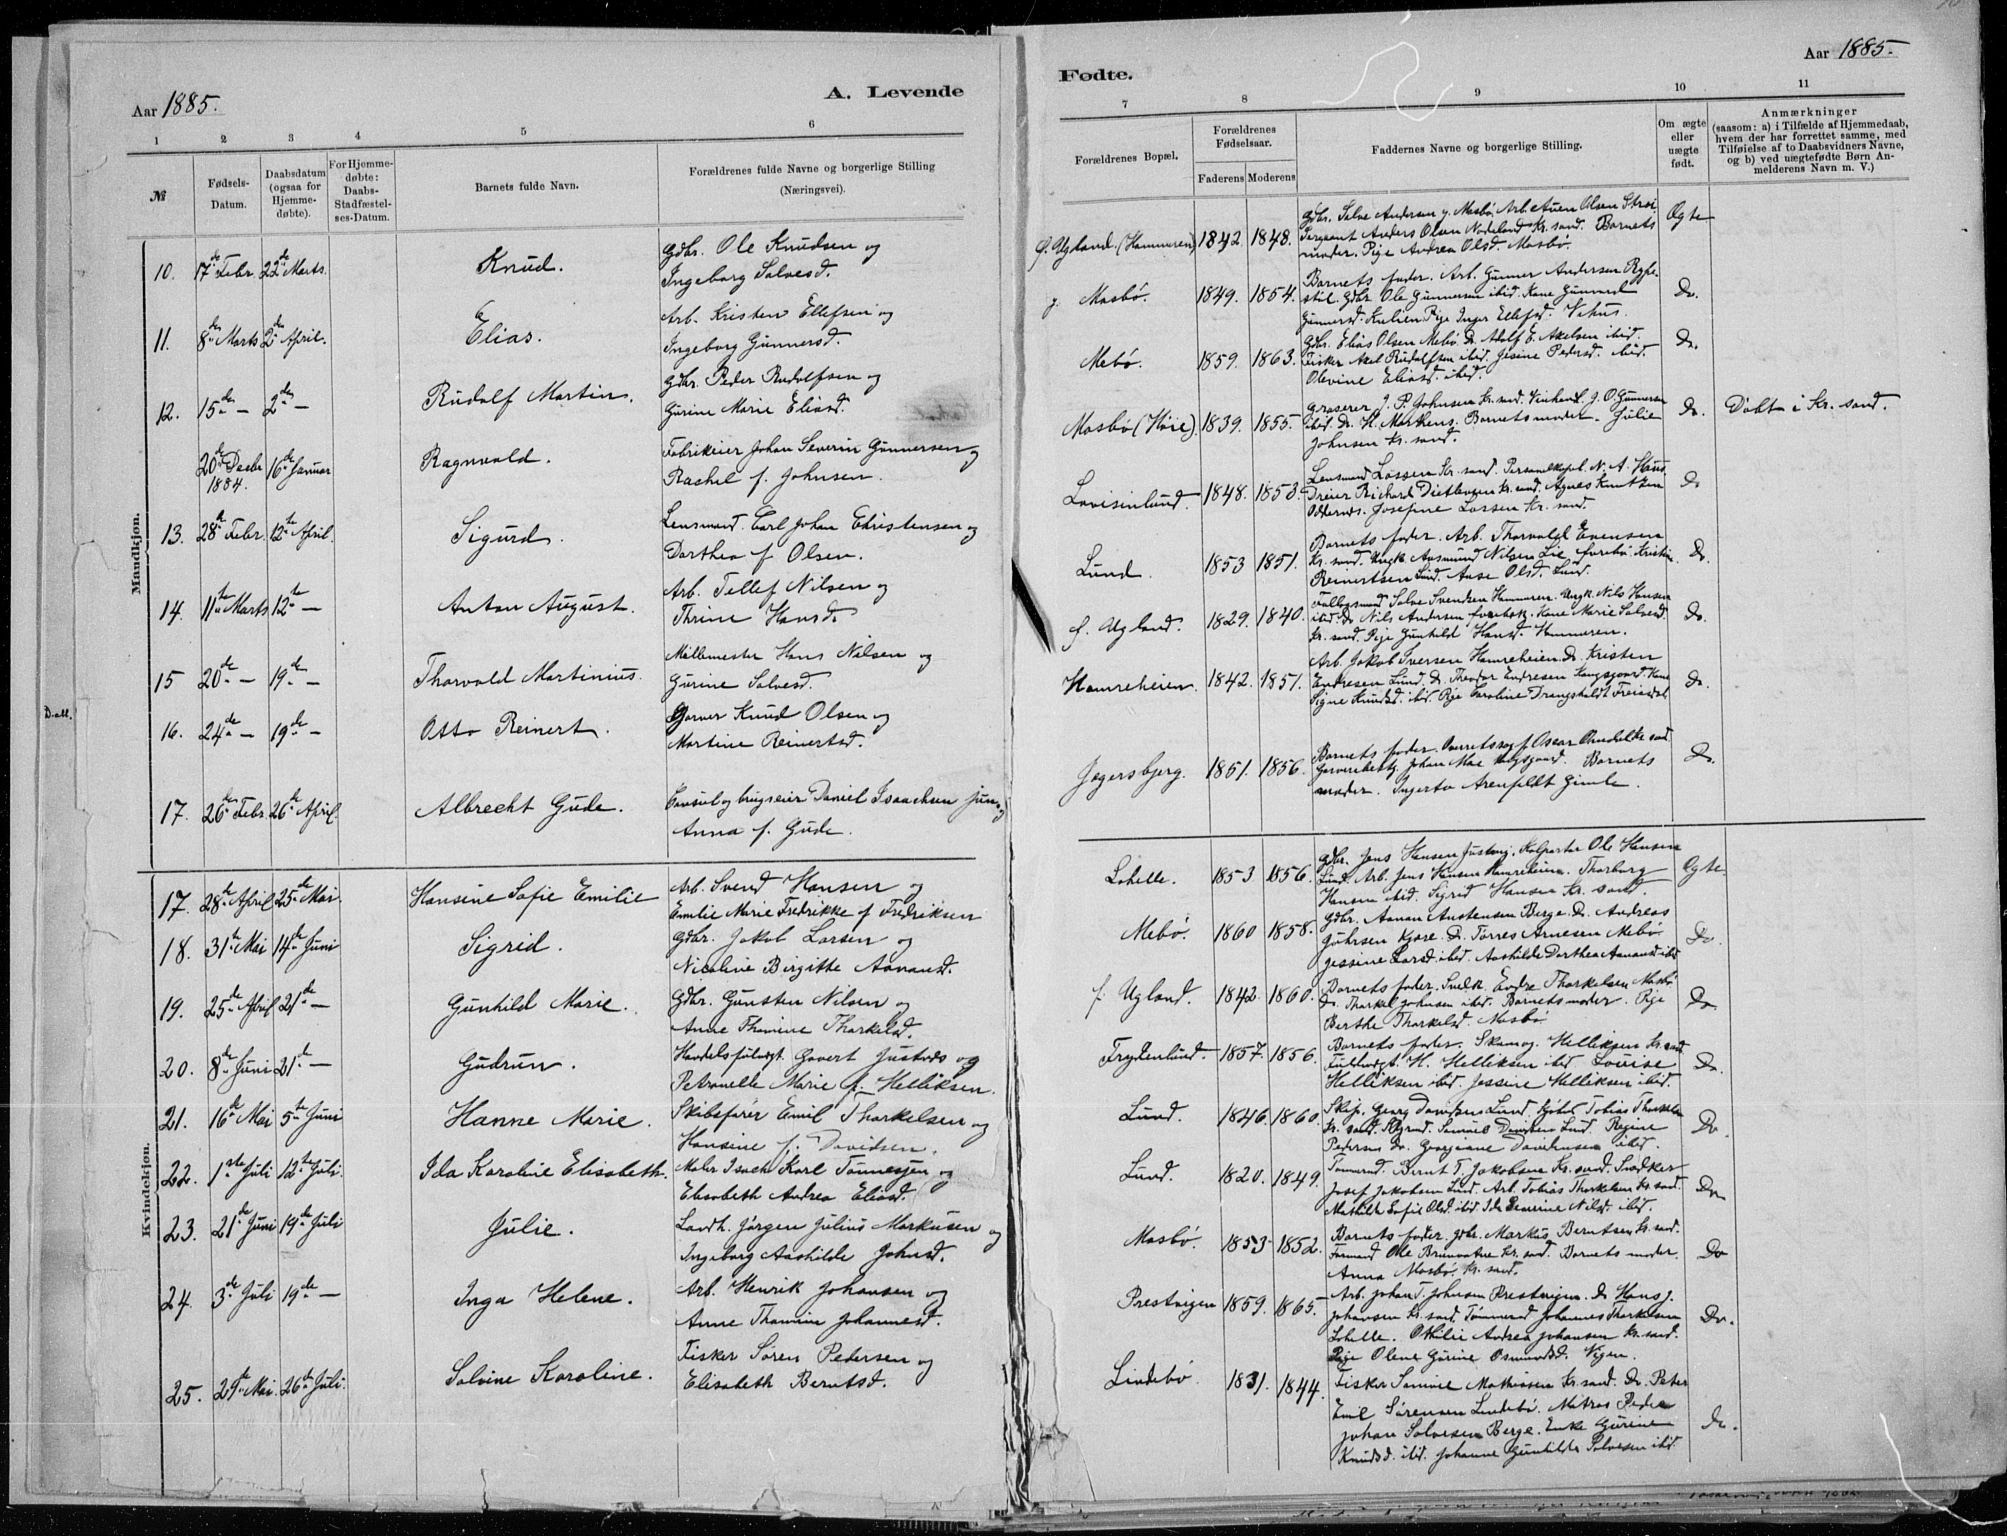 Aar 1885.
A. Levende
1 2 3 4 5 6
№
Fødsels-Datum.
Daabsdatum (ogsaa for Hjemme-døbte).
For Hjemme-døbte: Daabs-Stadfæstel-ses-Datum.
Barnets fulde Navn.
Forældrenes fulde Navne og borgerlige Stilling
(Næringsvei).
Mandkjøn.
10. 17de Febr. 22de Marts. Knud. Gdbr. Ole Knudsen og
Ingeborg Salvesd.
11. 8de Marts 2den April. Elias. Arb. Kristen Ellefsen og
Ingeborg Gunnersd.
12. 15de — 2den — Rudolf Martin. Gdbr. Peder Rudolfsen og
Gurine Marie Eliasd.
20de Decbr 1884. 16de Januar Ragnvald. Fabrikeier Johan Severin Gunnersen og
Rachel f. Johnsen.
13. 28de Febr. 12te April. Sigurd. Lensmand Carl Johan Christensen og
Dorthea f. Olsen.
14. 11te Marts 12te — Anton August. Arb. Tellef Nilsen og
Thrine Hansd.
15 20de — 19de — Thorvald Martinius. Møllemester Hans Nilsen og
Gurine Salvesd.
16. 24de — 19de — Otto Reinert. Garver Knud Olsen og
Martine Reinertsd.
17. 26de Febr. 26de April. Albrecht Gude. Consul og brugseier Daniel Isaachsen jun. og
Anna f. Gude.
Kvindekjøn.
17. 28de April 25de Mai. Hansine Sofie Emilie Arb. Svend Hansen og
Emilie Marie Fredrikke f. Fredriksen
18. 31te Mai 14de Juni Sigrid. Gdbr. Jakob Larsen og
Nicoline Birgitte Aanansd.
19. 25de April 21de — Gunhild Marie. Gdbr. Gunsten Nilsen og
Anne Thomine Thorkelsd.
20. 8de Juni 21de — Gudrun. Handelsfulmgt. Govert Justnæs og
Petronelle Marie f. Helliksen.
21. 16de Mai 5te Juni Hanne Marie. Skibsfører Emil Thorkelsen og
Hansine f. Davidsen.
22. 1ste Juli 12te Juli. Ida Karoline Elisabeth. Maler Isach Karl Tønnesen og
Elisabeth Andrea Eliasd.
23. 21de Juni 19de Juli Julie. Landh. Jørgen Julius Markusen og
Ingeborg Aashilde Johnsd.
24. 3de Juli 19de — Inga Helene. Arb. Henrik Johansen og
Anne Thomine Johannesd.
25. 29de Mai. 26de Juli. Salvine Karoline. Fisker Søren Petersen og
Elisabeth Berntsd.
Fødte.
Aar 1885.
7 8 9 10 11
Forældrenes Bopæl.
Forældrenes Fødselsaar.
Faderens Moderens
Faddernes Navne og borgerlige Stilling.
Om ægte eller uægte født.
Anmærkninger
(saasom: a) i Tilfælde af Hjemmedaab, hvem der har forrettet samme, med Tilføielse af to Daabsvidners Navne, og b) ved uægtefødte Børn An-melderens Navn m. V.)
f. Ugland. (Hammeren) 1842. 1848. Gdbr. Salve Andersen y. Mosbø. Arb. Auen Olsen
Sergeant Anders Olsen Nodeland Kr.sand. Barnets
moder. Pige Andrea Olsd. Mosbø. Ægte
y. Mosbø. 1849. 1854. Barnets fader. Arb. Gunner Andersen
Gdbr. Ole Gunnersen ibid. Kone Gunvord
Gunnersd. Kulien. Pige Inger Ellefsd. Vehus. Do.
Mebø. 1859. 1863. Gdbr. Elias Olsen Mebø. Do Adolf E. Akelsen ibid.
Fisker Akel Rudolfsen ibid. Jesine Pedersd. ibid.
Olevine Eliasd. ibid. Do.
Mosbø (Høie). 1839. 1855. Grosserer J. P. Johnsen Kr.sand. Vinhandl. J. O. Gunnersen
ibid. Do H. Markens. Barnets moder. Julie
Johnsen Kr.sand. Do. Døbt i Kr.sand.
Lovisenlund. 1848. 1853. Lensmand Lassen Kr.sand. Personelkapl. N. A. Haus.
Dreier Richard Dietlevsen Kr.sand. Agnes Knutzen
Oddernes. Josefine Lassen Kr.sand. Do
Lund. 1853 1851. Barnets fader. Arb. Thorvald Evensen
Kr.sand. Ungk. Aasmund Nilsen Lie. Kristine
Reinertsen Lund. Aase Olsd. Lund. Do.
f. Ugland. 1829. 1840. Salve Svendsen Hammeren. Ungk. Nils Hansen
ibid. Do Nils Andersen Kone Marie Salvesd.
Kr.sand. Pige Gunhild Hansd. Hammeren. Do.
Hamreheien. 1842. 1851. Arb. Jakob Iversen Hamreheien. Do Kristen
Endresen Lund. Do. Theodor Endresen Kongsgaard. Kone
Signe Knudsd. ibid. Pige Caroline Drangsholdt Do.
Jegersbjerg. 1851. 1856. Barnets fader. Overretssagf. Oscar
Garveribest. Johan Moe Kongsgaard. Barnets
moder. Ingerta Arenfeldt Gimle. Do.
Lohelle. 1853 1856. Gdbr. Jens Hansen Justvig. Kolportør Ole Hansen
Lund. Arb. Jens Hansen Hamreheien. Thorborg
Hansen ibid. Sigrid Hansen Kr.sand. Ægte.
Mebø. 1860 1858. Gdbr. Aanan Austensen Berge. Do. Andreas
Kjøre. Do. Tørres Arnesen Mebø.
Jessine Larsd. ibid. Aashilde Dorthea Aanansd. ibid Do.
f. Ugland. 1842. 1860. Barnets fader. Endre Thorkelsen Mosbø
Do. Thorkel Johnsen ibid. Barnets moder. Pige
Berthe Thorkelsd. Mosbø Do.
Frydenlund. 1857. 1856. Barnets fader. Helliksen Kr.sand.
Fuldmægt. H. Helliksen ibid Lovise
Helliksen ibid. Jessine Helliksen ibid. Do.
Lund. 1846. 1860. Skip. Georg Davidsen Lund. Tobias Thorkelsen
Kr.sand. Samuel Davidsen Lund. Regine
Pedersen Do. Georgiane Davidsen ibid. Do.
Lund. 1820. 1849. Tømmermd. Bernt T. Jakobsen Kr.sand. Snedker
Josef Jakobsen Lund. Arb. Tobias Thorkelsen Kr.sand.
Mathilde Sofie Olsd. ibid. Ida Severine Nilsd. ibid. Do
Mosbø. 1853 1852. Barnets fader. Gdbr. Markus Berntsen Kr.sand.
Formand Ole Brunvatne Kr.sand. Barnets moder.
Anna Mosbø. Kr.sand. Do
Prestvigen 1859. 1865. Arb. Johan T. Johnsen Prestvigen. Do Hans J.
Johansen Kr.sand. Tømmermd. Johannes Thorkelsen
Lohelle. Othilie Andrea Johansen Kr.sand.
Pige Olene Gurine Osmundsd. Vigen. Do.
Lindebø. 1831. 1844. Fisker Samuel Mathiasen Kr.sand. Do. Peter
Emil Sørensen Lindebø. Matros Peder
Johan Salvesen Berge. Enke Gurine
Knudsd. ibid. Johanne Gunhilde Salvesen ibid Do.